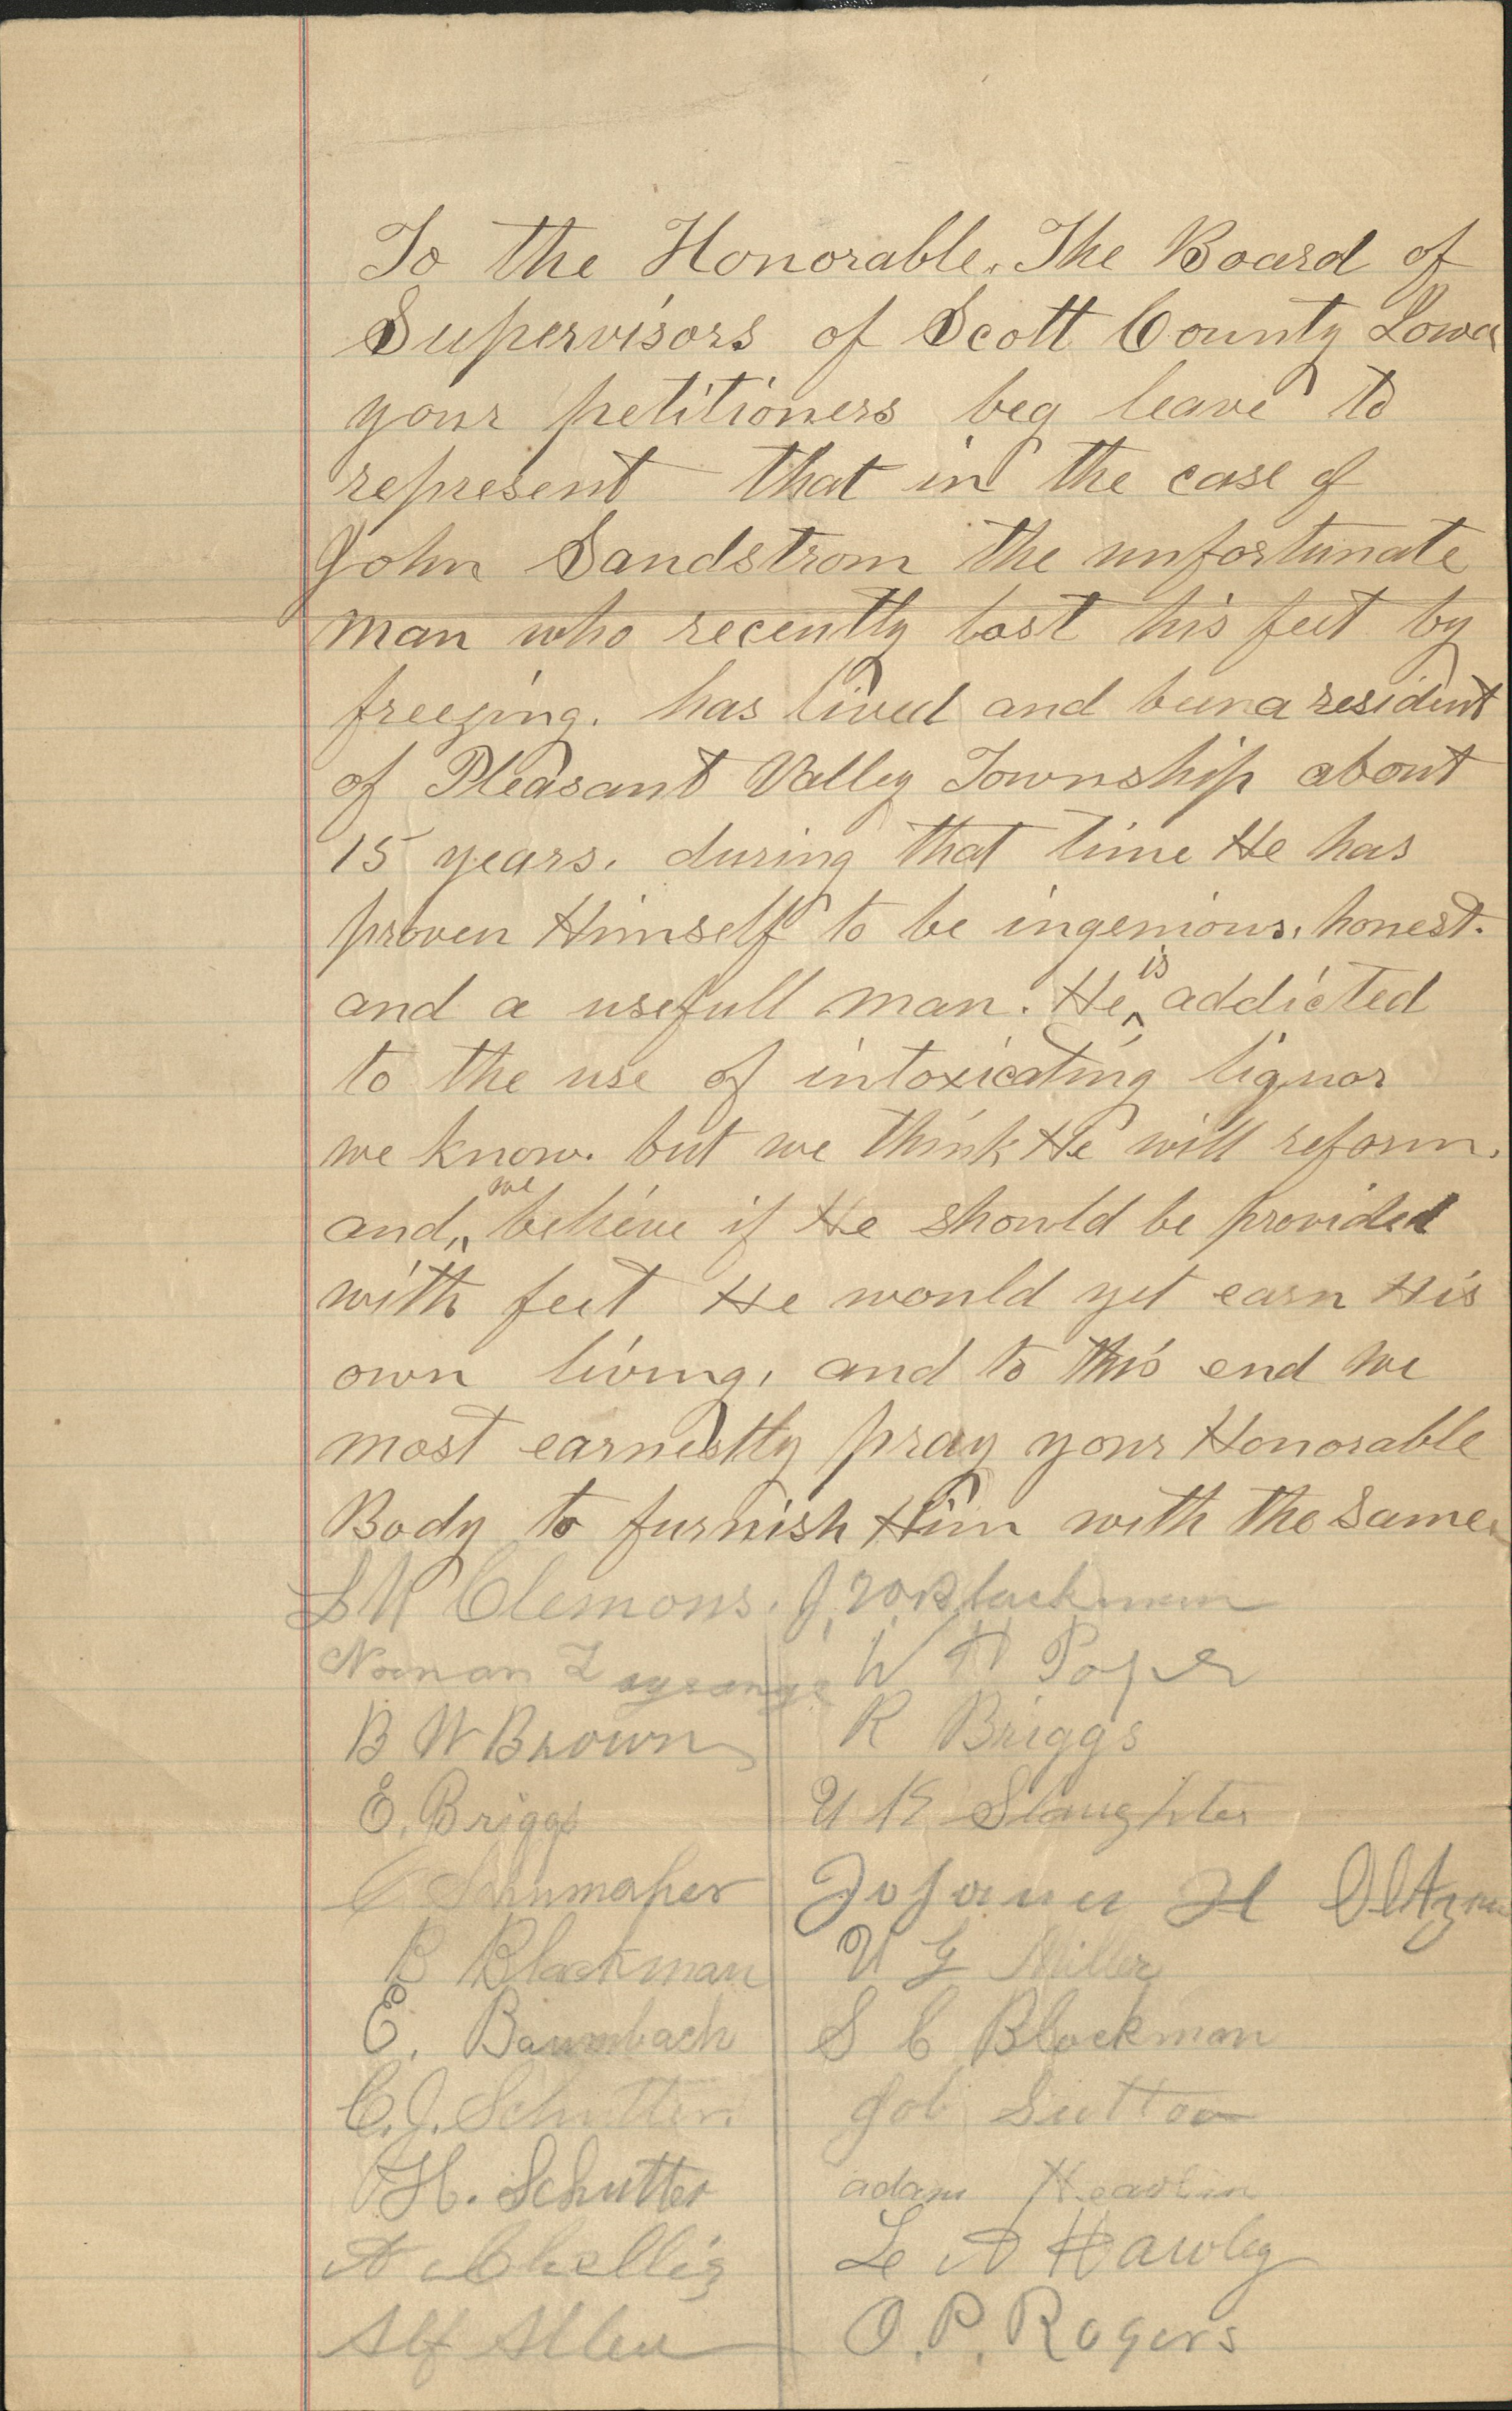 To the Honorable. The Board of
Supervisors of Scott County Iowa
your petitioners beg leave to
represent that in the case of
John Sandstrom the unfortunate
man who recently lost his feet by
freezing. has lived and been a resident
of Pleasant Valley Township about
15 years. during that time He has
proven Himself to be ingenious, honest.
and a usefull man. He is addicted
to the use of intoxicating liquor
we know. but we think He will reform.
and we believe if He should be provided
with feet He would yet earn His
own living, and to this end we
most earnestly pray your Honorable
Body to furnish Him with the same.
Clemons. J. W. Blackman
W H Pope
B W Brown R Briggs
E. Briggs U K Slaughter
H
B Blackman U G Miller
E. Baumbach S C Blackman
C. J. Schutter. Job Sutton
H. Schutter adam
A Chellis Le A Hawley
Alf Allen O. P. Rogers